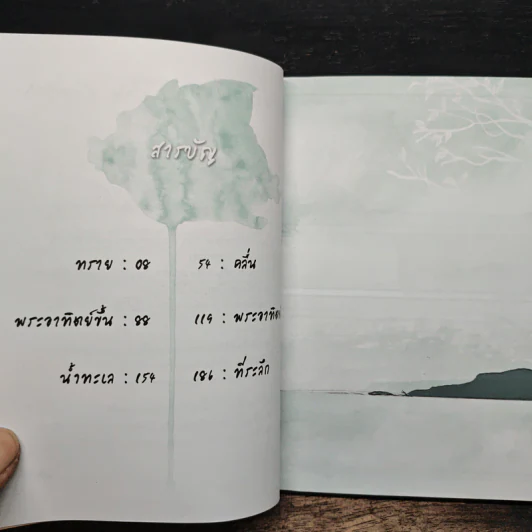 สารบัญ
ทราย : 08
54 : คลื่น
พระอาทิตย์ขึ้น : 88
119 : พระอาทิตย์
น้ำทะเล : 154
186 : ที่ระลึก